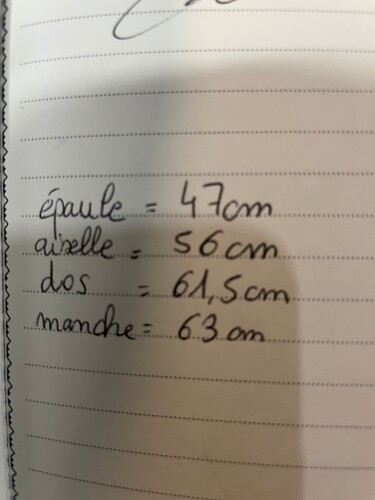 épaule = 47cm
aisselle = 56cm
dos = 61,5cm
manche = 63cm